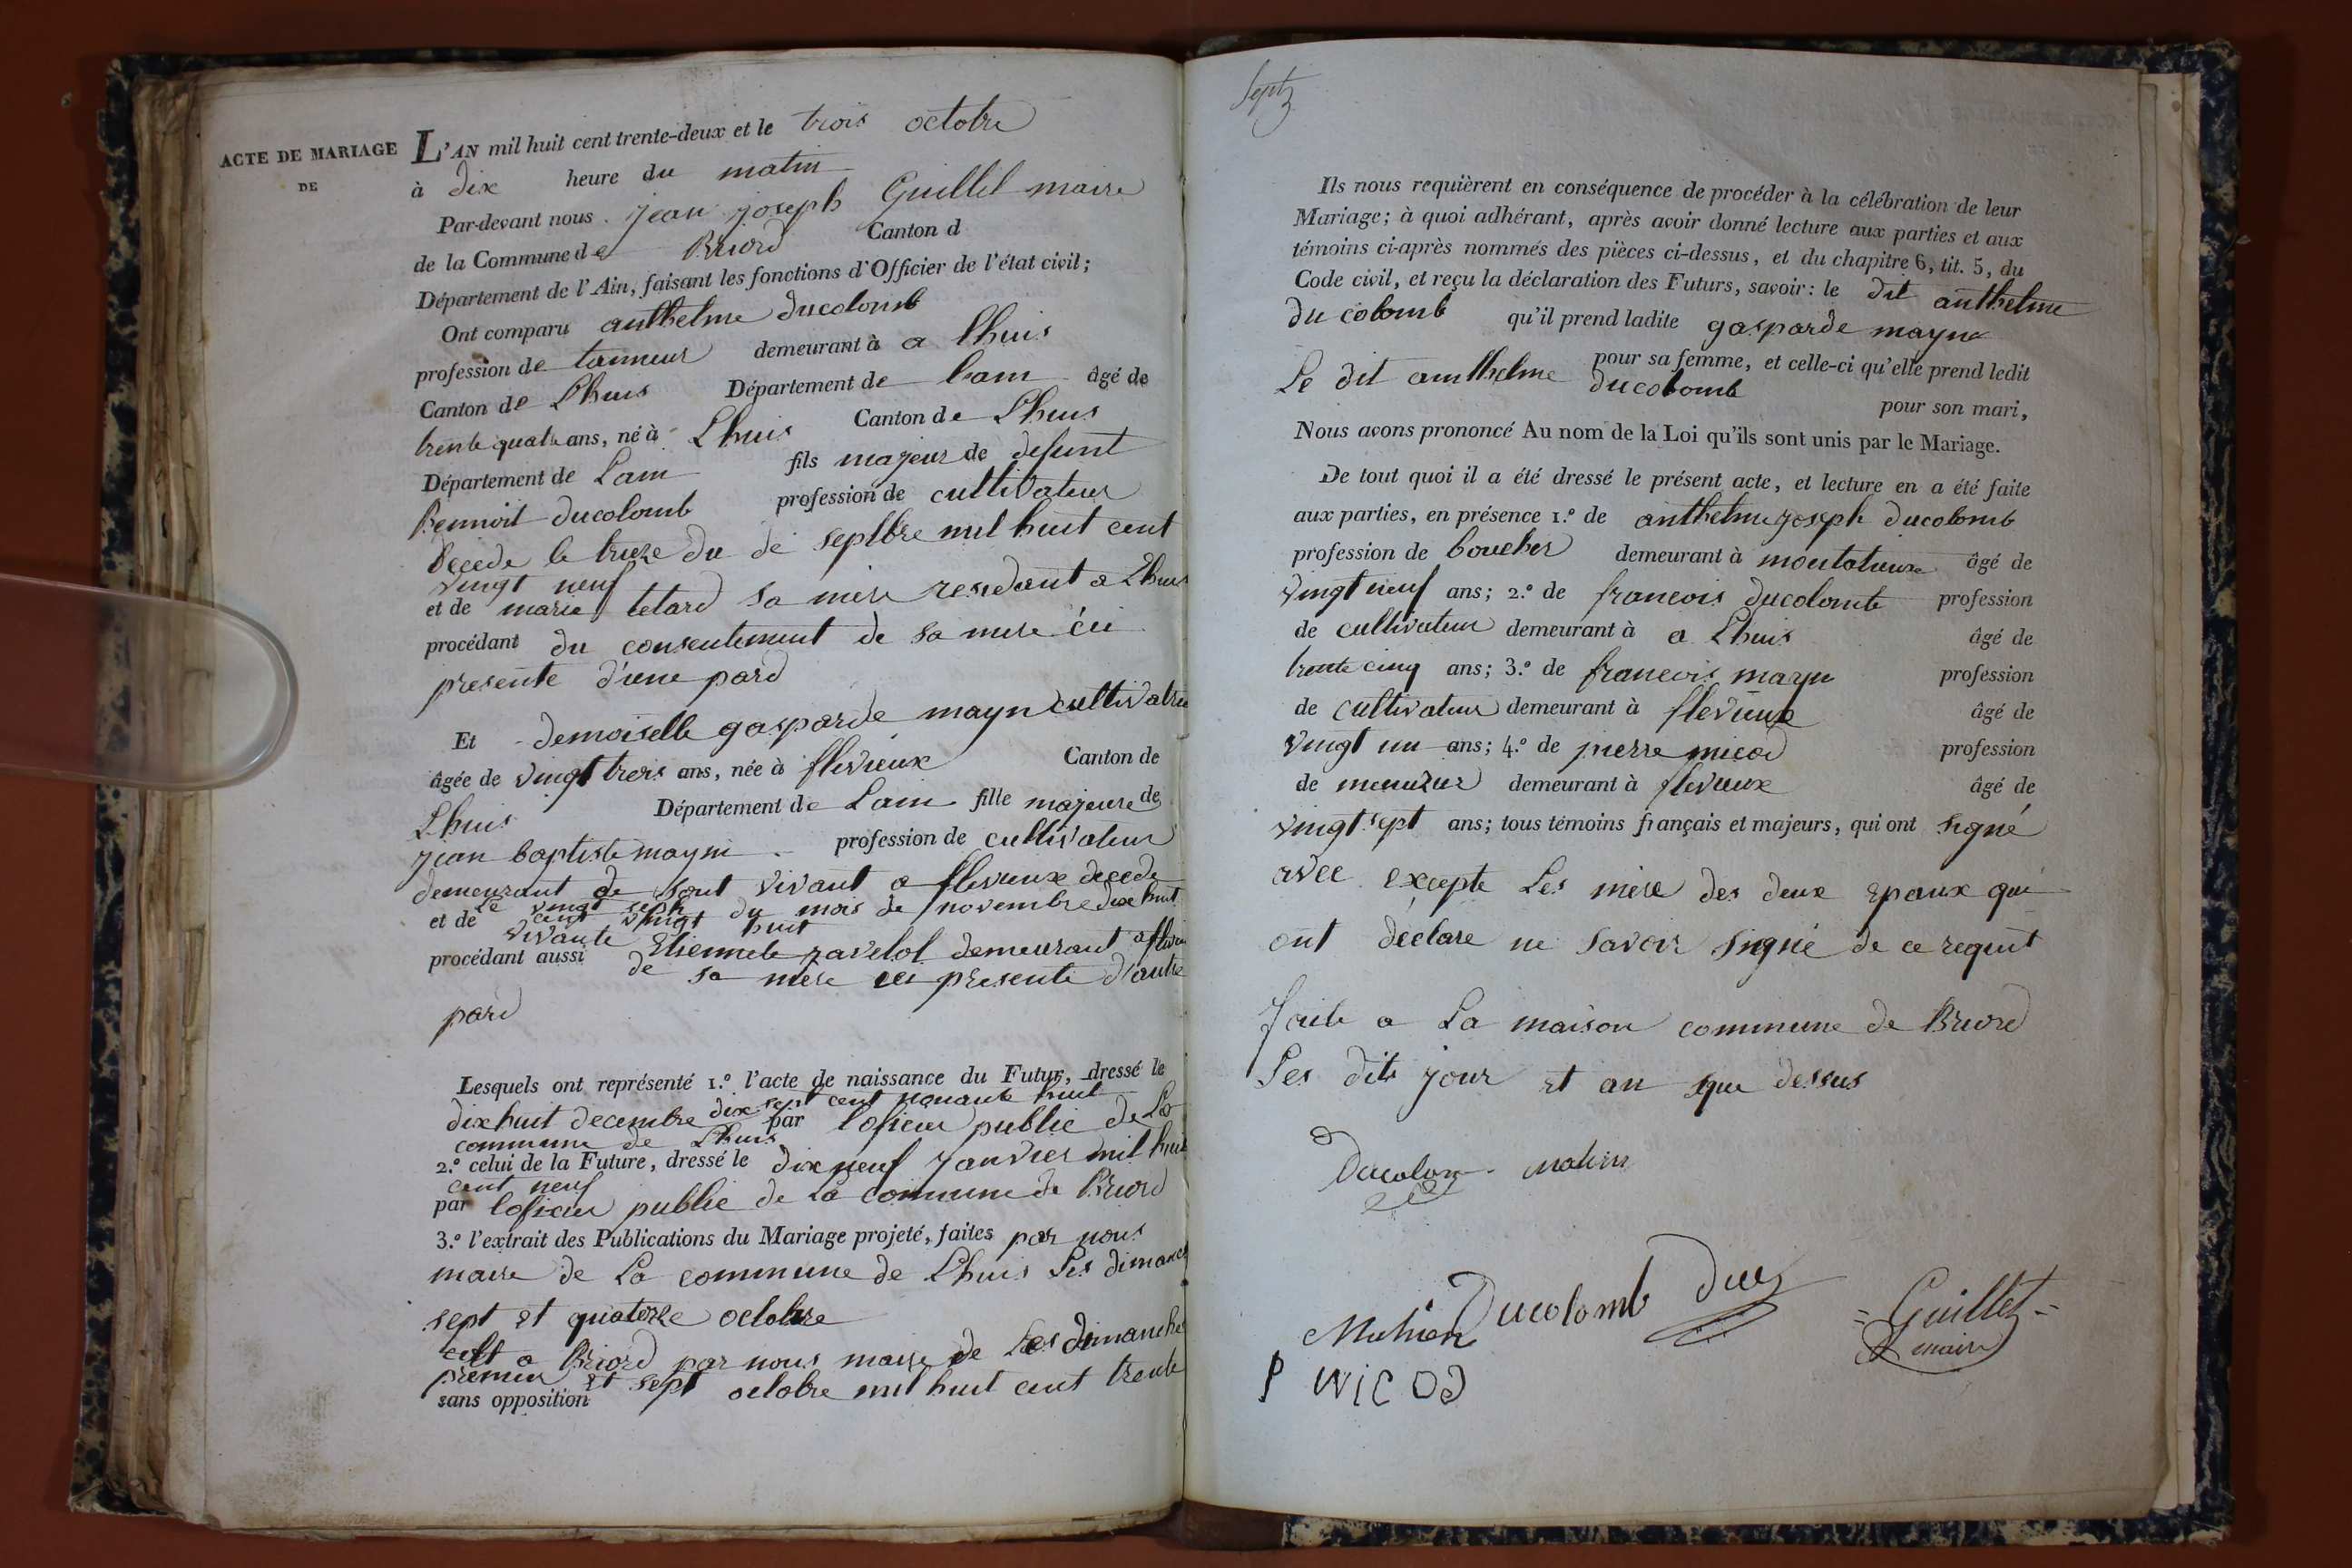 ACTE DE MARIAGE
DE
L'AN mil huit cent trente-deux et le trois octobre
à dix heure du matin
Par-devant nous jean joseph Guillet maire
de la Commune de Briord Canton d
Département de l'Ain, faisant les fonctions d'Officier de l'état civil;
Ont comparu anthelme ducolomb
profession de tanneur demeurant à a lhuis
Canton de Lhuis Département de lain âgé de
trente quatre ans, né à Lhuis Canton de Lhuis
Département de Lain fils majeur de defunt
Bennoit ducolomb profession de cultivateur
decede le treize du de septbre mil huit cent
vingt neuf
et de marie tetard sa mere residant a Lhuis
procédant du consentement de sa mere ici
presente d'une pard
Et demoiselle gasparde mayn cultivatrice
âgée de vingt trois ans, née à flevieux Canton de
Lhuis Département de Lain fille majeure de
jean baptiste mayn profession de cultivateur
demeurant de sont vivant a flevieux decede
le vingt sept du mois de novembre dixe huit
et de cent vingt huit
vivante Etiennete ravelol demeurant a flevieu
procédant aussi de sa mere ici presente d'autre
pard
Lesquels ont représenté 1.º l'acte de naissance du Futur, dressé le
dix huit decembre dix sept cent nonante huit
par l'oficier public de La
commune de Lhuis
2.º celui de la Future, dressé le dix neuf janvier mil huit
cent neuf
par loficier public de La commune de Briord
3.º l'extrait des Publications du Mariage projeté, faites par nous
maire de La commune de Lhuis Les dimanch
sept et quatorze octobre
a Briord par nous maire de Les dimanche
premier et sept octobre mil huit cent trente
sans opposition
Septz
Ils nous requièrent en conséquence de procéder à la célébration de leur
Mariage; à quoi adhérant, après avoir donné lecture aux parties et aux
témoins ci-après nommés des pièces ci-dessus, et du chapitre 6, tit. 5, du
Code civil, et reçu la déclaration des Futurs, savoir: le dit anthelme
du colomb qu'il prend ladite gasparde mayne
pour sa femme, et celle-ci qu'elle prend ledit
Le dit amthelme ducolomb pour son mari,
Nous avons prononcé Au nom de la Loi qu'ils sont unis par le Mariage.
De tout quoi il a été dressé le présent acte, et lecture en a été faite
aux parties, en présence 1.º de anthelme joseph ducolomb
profession de boucher demeurant à âgé de
vingt neuf ans; 2.º de francois ducolomb profession
de cultivateur demeurant à a Lhuis âgé de
trente cinq ans; 3.º de francois mayn profession
de cultivateur demeurant à flevieux âgé de
vingt un ans; 4.º de pierre micod profession
de menuzier demeurant à flevieux âgé de
vingt sept ans; tous témoins français et majeurs, qui ont signé
avec excepte Les mere des deux epoux qui
ont déclare ne savoir signé de ce requit
faite a La maison commune de Briord
Les dits jour et an que dessus
Ducolom
Ducolomb
Guillet
maire
P MICOD